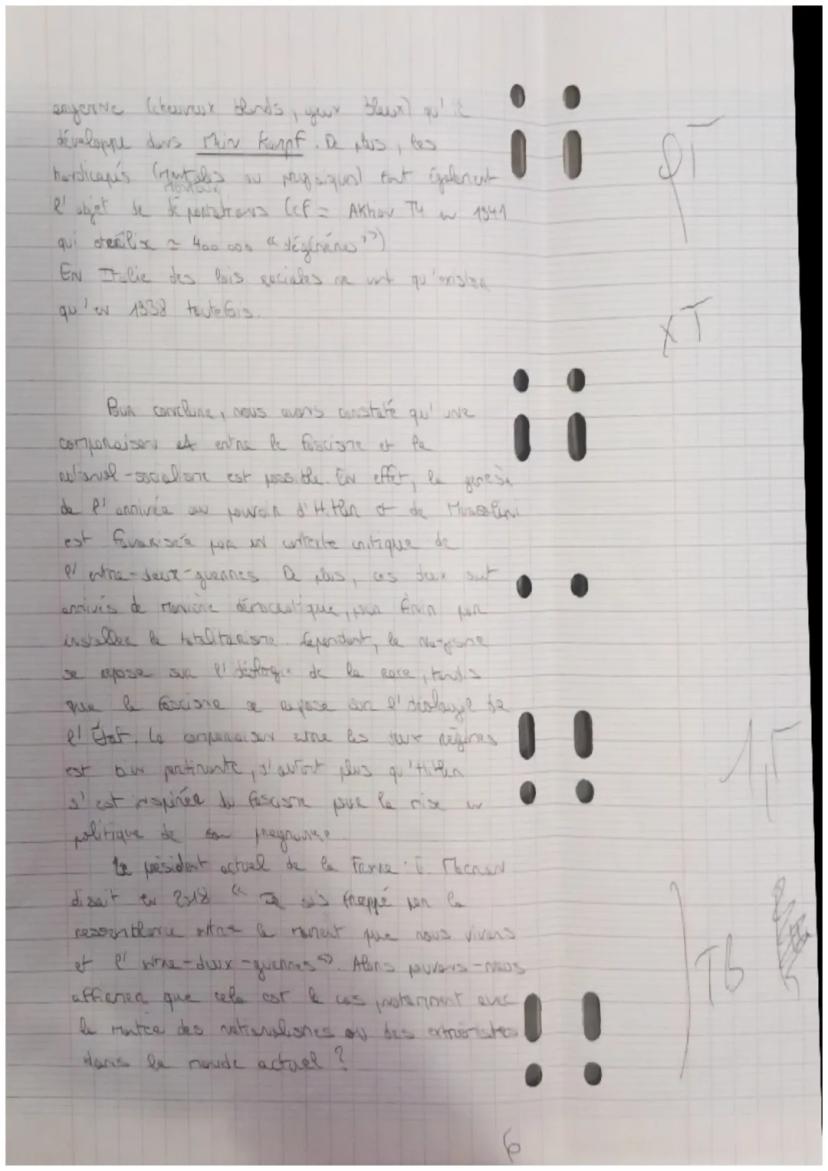 aryenne (cheveux blonds, yeux bleus) qu'il
développe dans Mein Kampf. De plus, les
handicapés (mentaux ou physiques) font également
l'objet de déportations (cf = Aktion T4 en 1941
qui stérilise ≃ 400 000 "dégénérés")
En Italie des lois raciales ne vont qu'exister
qu'en 1938 toutefois.
φT
XT
Pour conclure, nous avons constaté qu'une
comparaison entre le fascisme et le
national-socialisme est possible. En effet, la genèse
de l'arrivée au pouvoir d'Hitler et de Mussolini
est favorisée par un contexte critique de
l'entre-deux-guerres. De plus, ces deux sont
arrivés de manière démocratique, pour finir par
installer le totalitarisme. Cependant, le nazisme
se repose sur l'idéologie de la race, tandis
que le fascisme se repose sur l'idéologie de
l'État. La comparaison entre les deux régimes
est pertinente, d'autant plus qu'Hitler
s'est inspirée du fascisme pour la mise en
politique de son programme.
1,5
Le président actuel de la France E. Macron
disait en 2018 "Je suis frappé par la
ressemblance entre le moment que nous vivons
et l'entre-deux-guerres". Alors pouvons-nous
affirmer que cela est le cas notamment avec
la montée des nationalismes ou des extrémistes
dans le monde actuel ?
TB
6